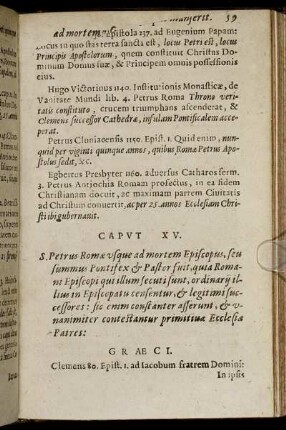 manserit. 59
ad mortem? Epistola 237. ad Eugenium Papam:
Locus in quo stas terra sancta est, locus Petri est, locus
Principis Apostolorum, quem constituit Christus Do
minum Domus suæ, & Principem omnis possessionis
eius.
Hugo Victorinus 1140. Institutionis Monasticæ, de
Vanitate Mundi lib. 4. Petrus Roma Throno veri-
tatis constituto, crucem triumphans ascenderat, &
Clemens successor Cathedræ, insulam Pontificalem acce-
perat.
Petrus Cluniacensis 1150. Epist. 1. Quid enim, nun-
quid per viginti quinque annos, quibus Romæ Petrus Apo-
stolus sedit, &c.
Egbertus Presbyter 1160. aduersus Catharos serm.
3. Petrus Antiochia Romam profectus, in ea fidem
Christianam docuit, ac maximam partem Ciuitatis
ad Christum conuertit, ac per 25. annos Ecclesiam Chri-
sti ibi gubernauit.
CAPVT XV.
S. Petrus Romæ vsque ad mortem Episcopus, seu
summus Pontifex & Pastor fuit, quia Roma-
ni Episcopi qui illum secuti sunt, ordinarij il-
lius in Episcopatu censentur, & legitimi suc-
cessores: sic enim constanter asserunt, & v-
nanimiter contestantur primitiuæ Ecclesiæ
Patres:
GRAECI.
Clemens 80. Epist. 1. ad Iacobum fratrem Domini:
In ipsis